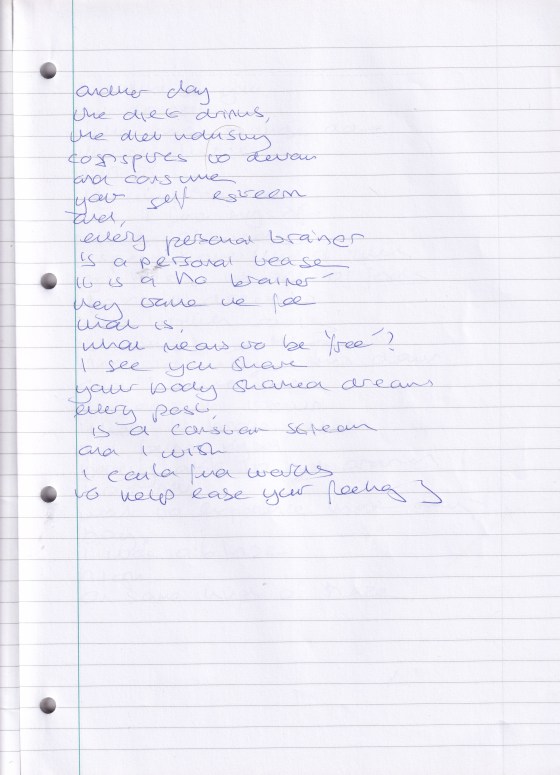 another day
the diet drinks,
the diet industry
conspires to devour
and consume
your self esteem
and,
every personal trainer
is a personal tease
it is a 'no brainer'
they came
what is,
what means to be 'free'?
I see you share
your body shamed dreams
every post,
is a constant scream
and I wish
I could find words
to help ease your feeling